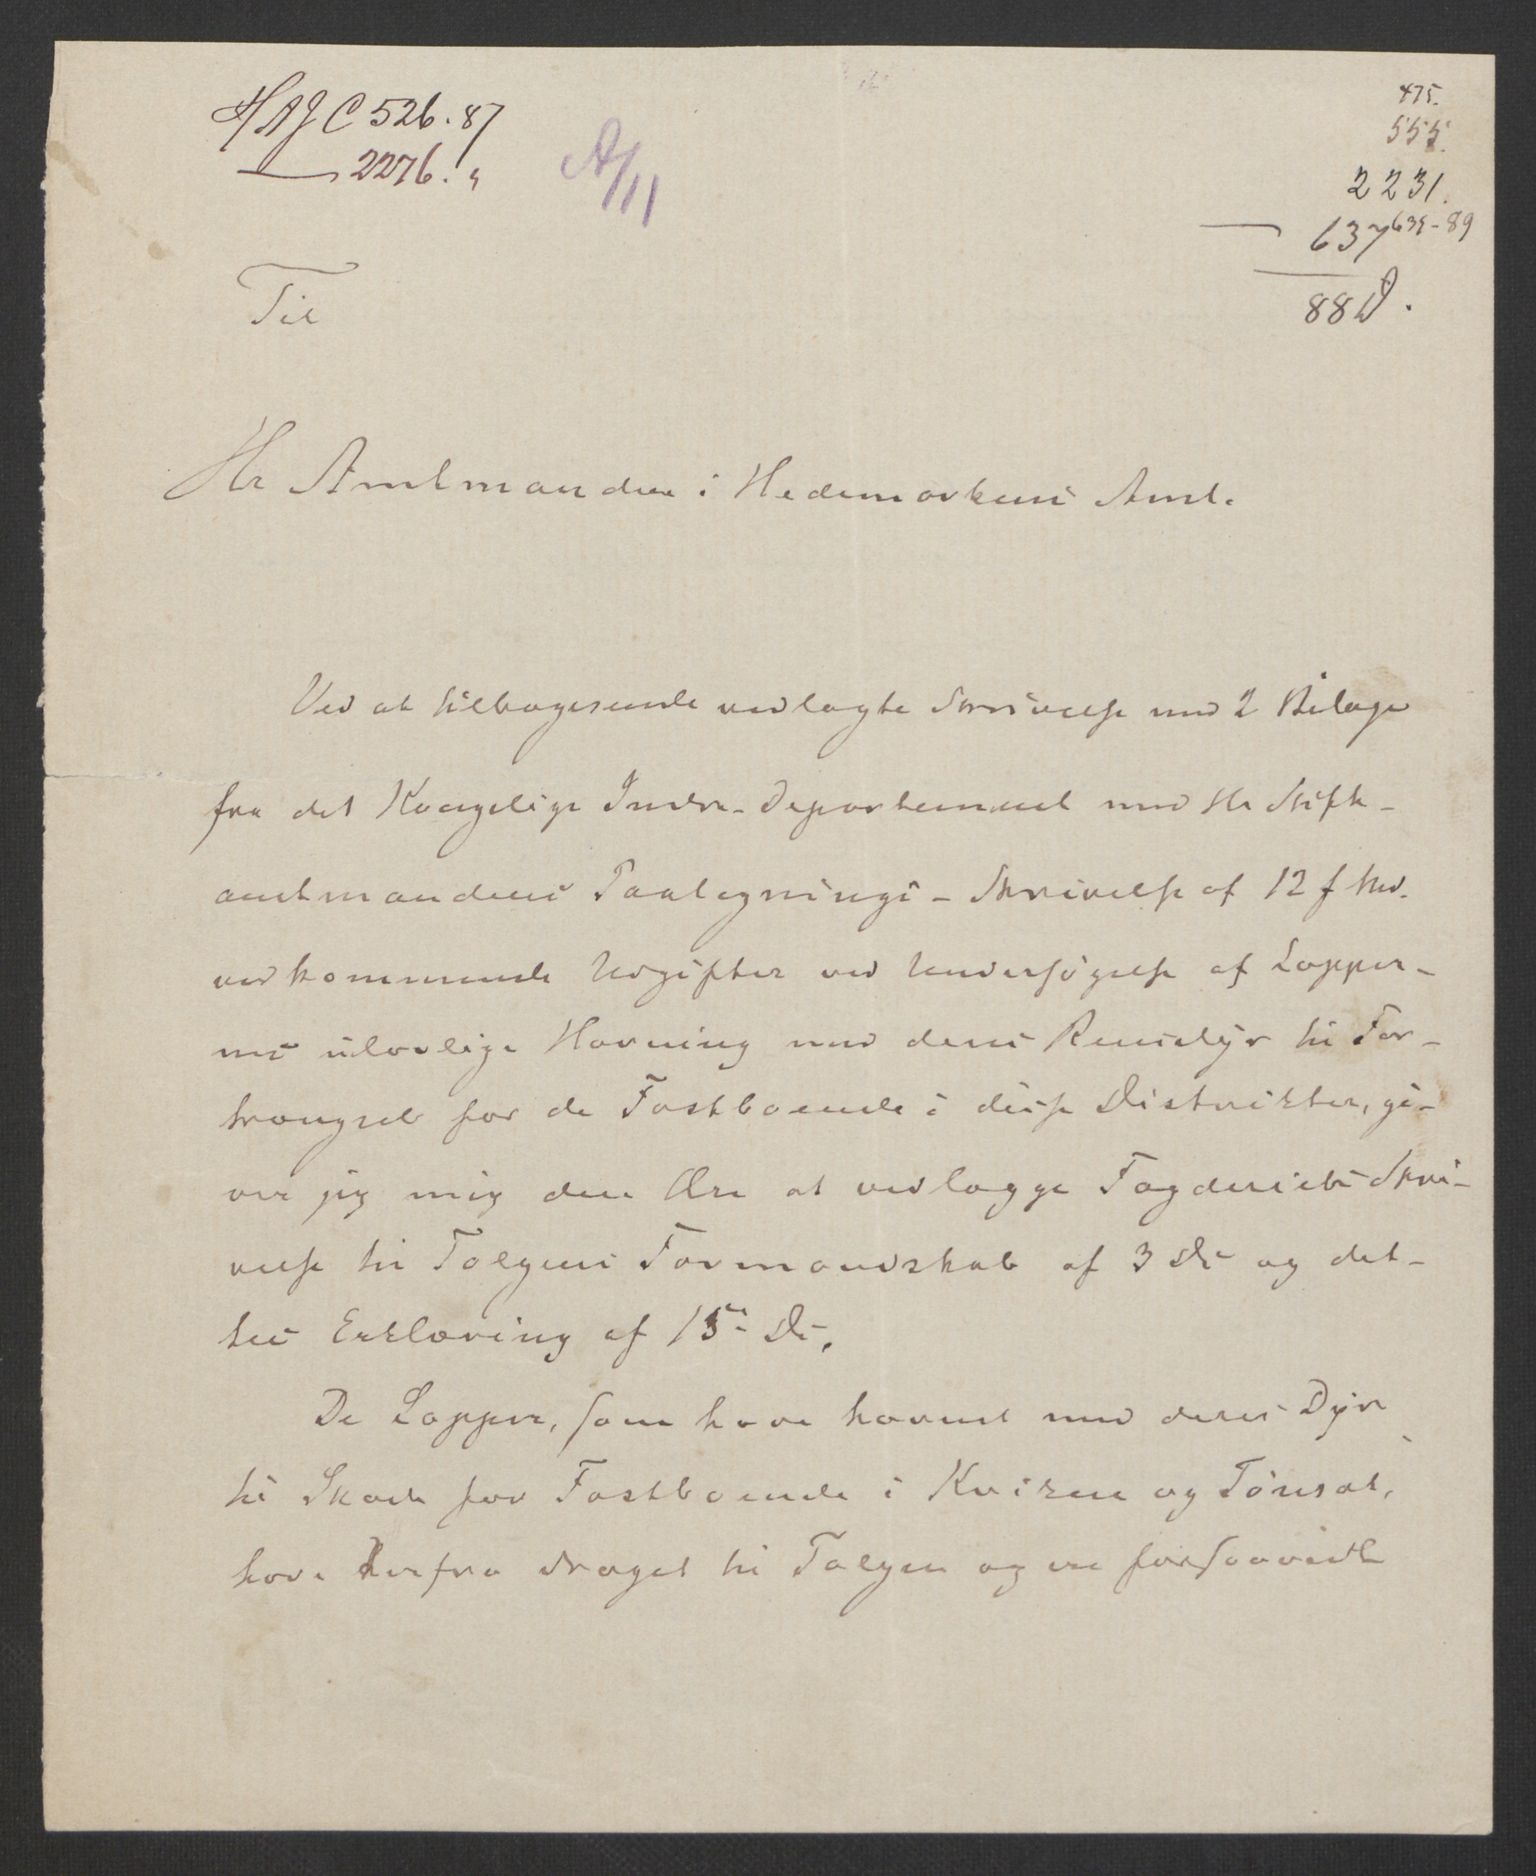 HAJC 526.87
— 2276. "
A/11
475.
555.
2231.
637 639-89
88 D.
Til
Hr Amtmanden i Hedemarkens Amt.
Ved at tilbagesende vedlagte Skrivelse med 2 Bilage
fra det Kongelige Indre-Departement med Hr Stift-
amtmandens Paategnings-Skrivelse af 12 f Md.
vedkommende Udgifter ved Undersøgelse af Lapper-
nes ulovlige Havning med deres Rensdyr til For-
trængsel for de Fastboende i disse Distrikter, gi-
ver jeg mig den Ære at vedlægge Fogderiets Skri-
velse til Tolgens Formandskab af 3 Ds og det-
tes Erklæring af 15de Ds.
De Lapper, som have havnet med deres Dyr
til Skade for Fastboende i Kvikne og Tønset,
have derfra draget til Tolgen og ere forsaavidt